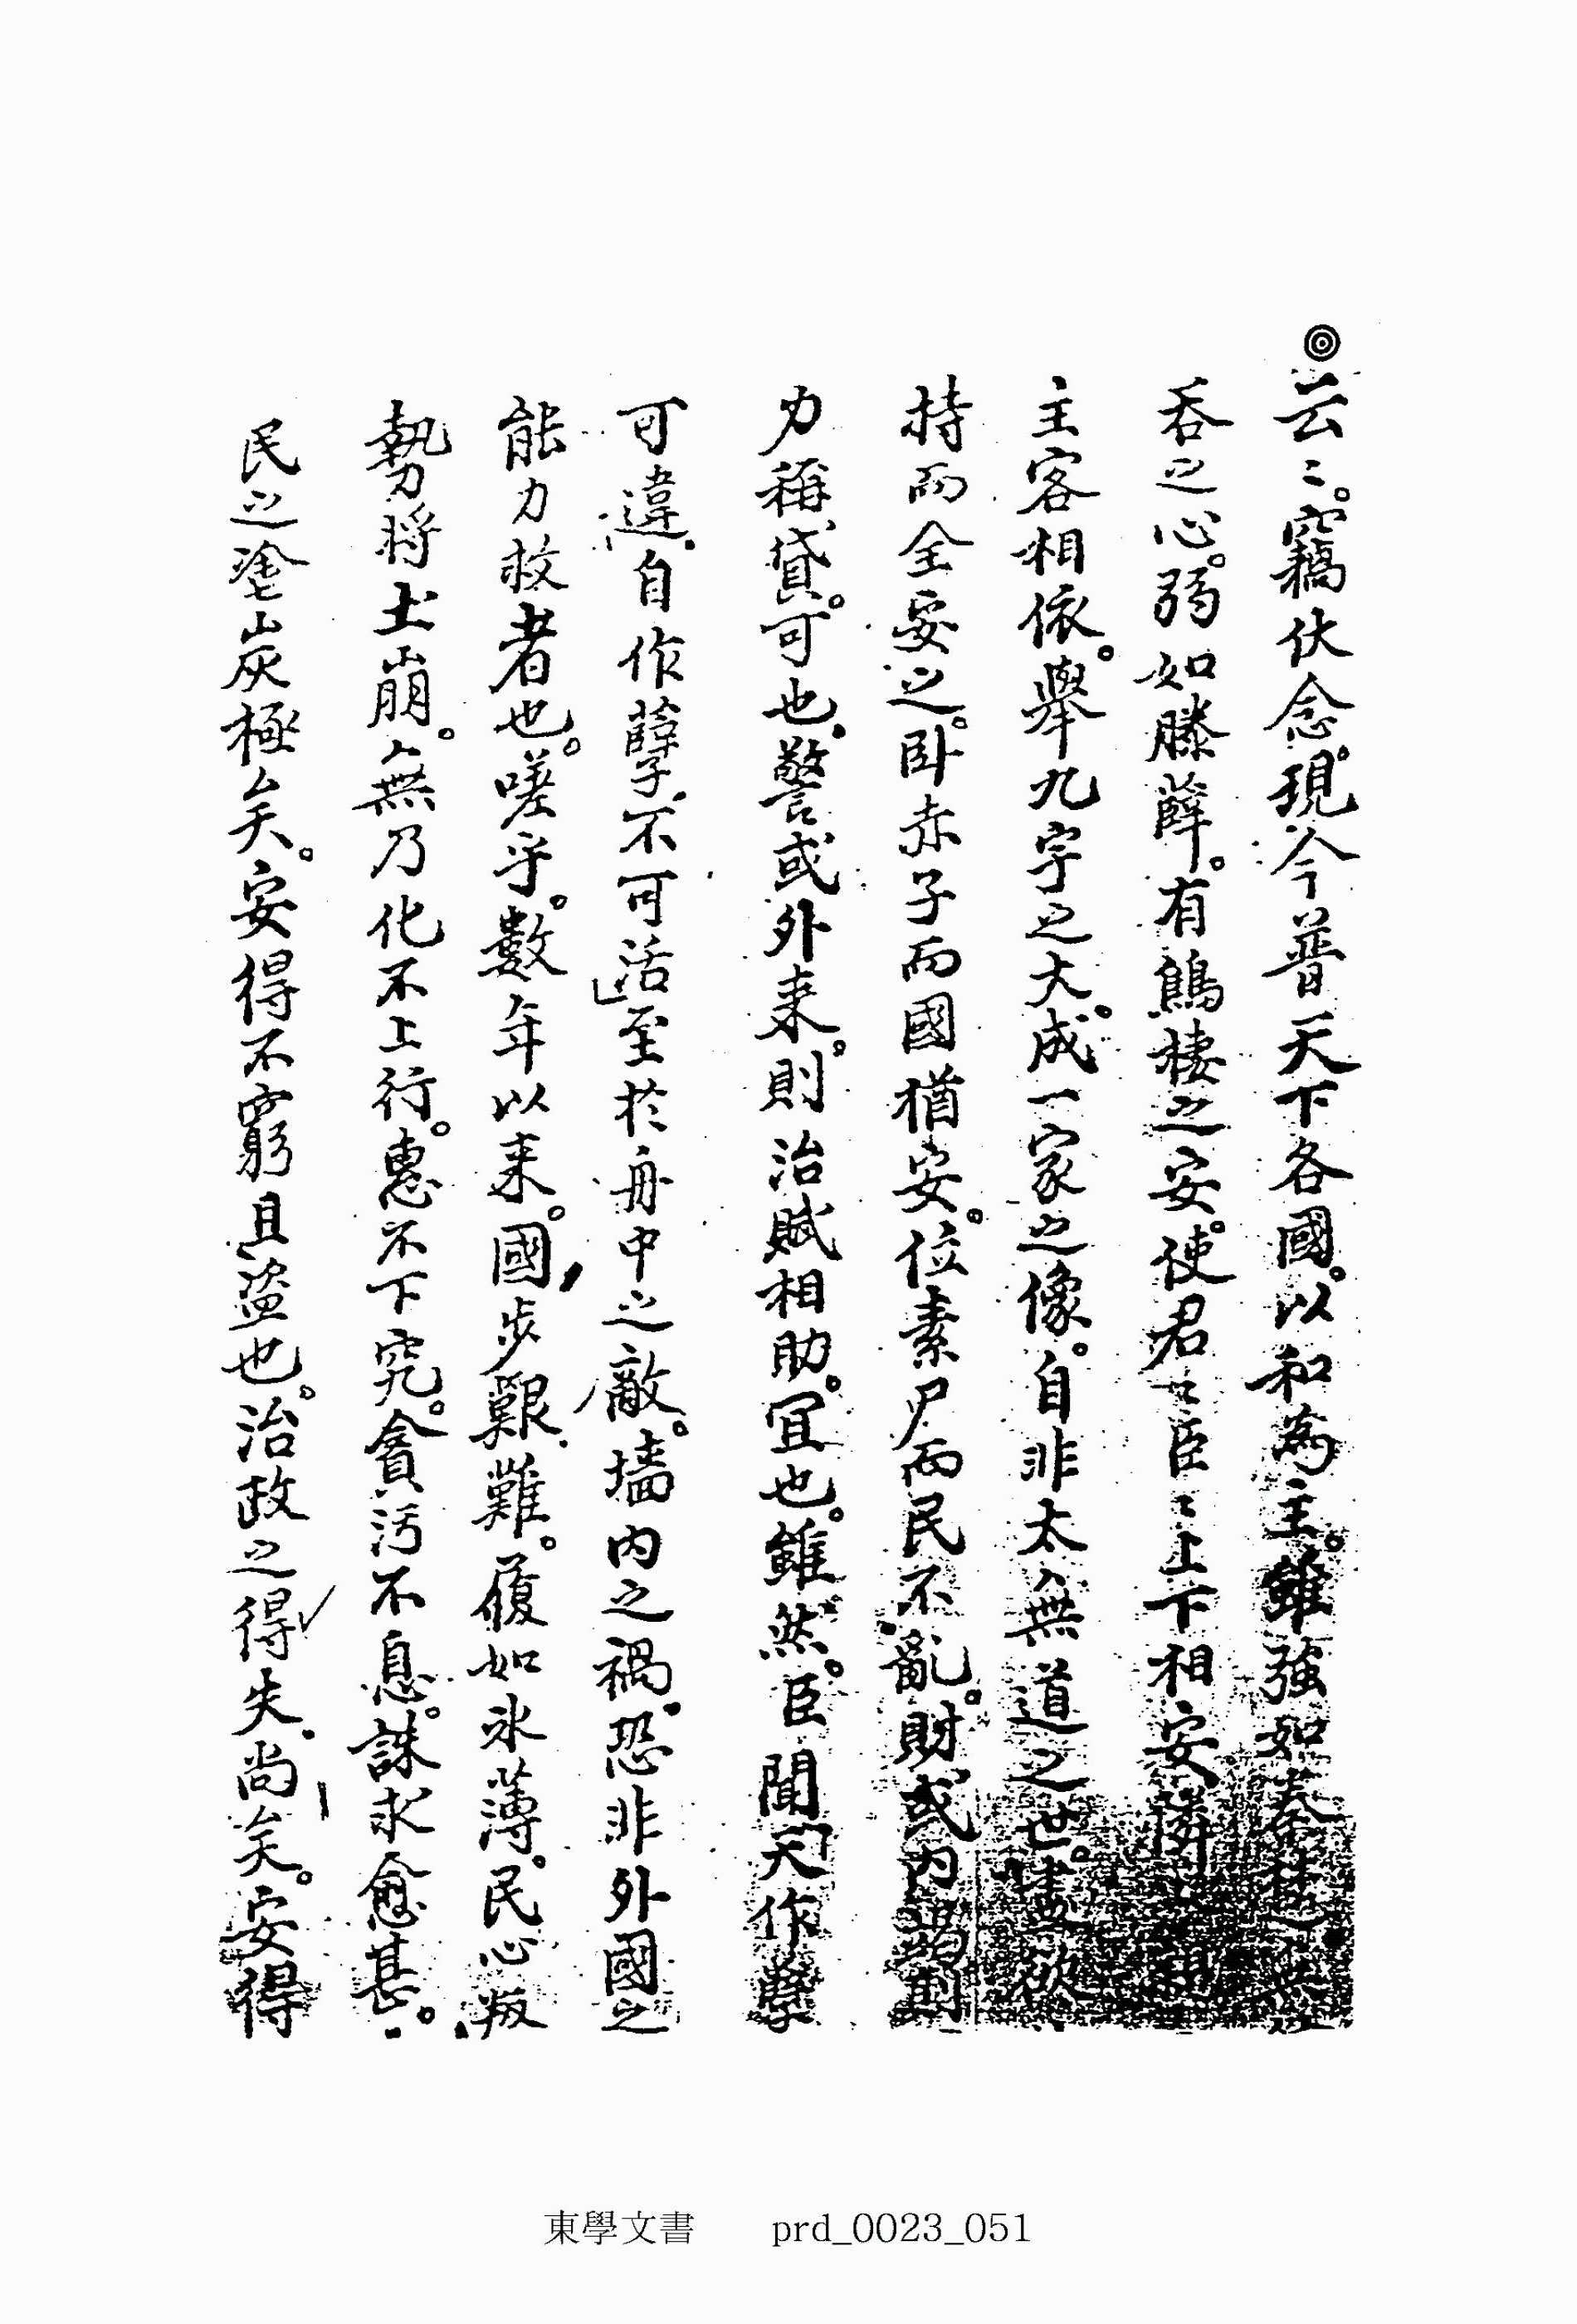 ◎云〻。竊伏念。現今普天下各國。以和為主。雖強如秦楚。無
吞之心。弱如滕薛。有鷦棲之安。使君〻臣〻上下相安隣
主客相依。擧九宇之大。成一家之像。自非太無道之世。
持而全妥之。臥赤子而國猶安。位素尸而民不亂。財或內竭則
力稱貸。可也。警或外来。則治賦相助。冝也。雖然。臣聞「天作孽
可違。自作孽。不可活」至於舟中之敵。墻内之禍。恐非外國之
能力救者也。嗟乎。數年以来。國步艱難。履如氷薄。民心叛
勢將土崩。無乃化不上行。惠不下究。貪污不息。誅求愈甚。
民之塗炭極矣。安得不窮且盜也。治政之得失。尚矣。安得
東學文書 prd_0023_051